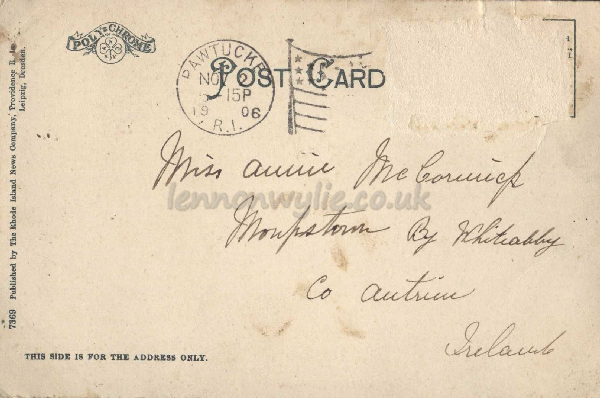 POLY-CHROME
PAWTUCKET
NOV
15P
1906
R.I.
POST CARD
Miss Annie McCormick
Monkstown By Whiteabby
Co Antrim
Ireland
lennonwylie.co.uk
THIS SIDE IS FOR THE ADDRESS ONLY.
7369 Published by The Rhode Island News Company, Providence R. J.
Leipzig, Dresden.